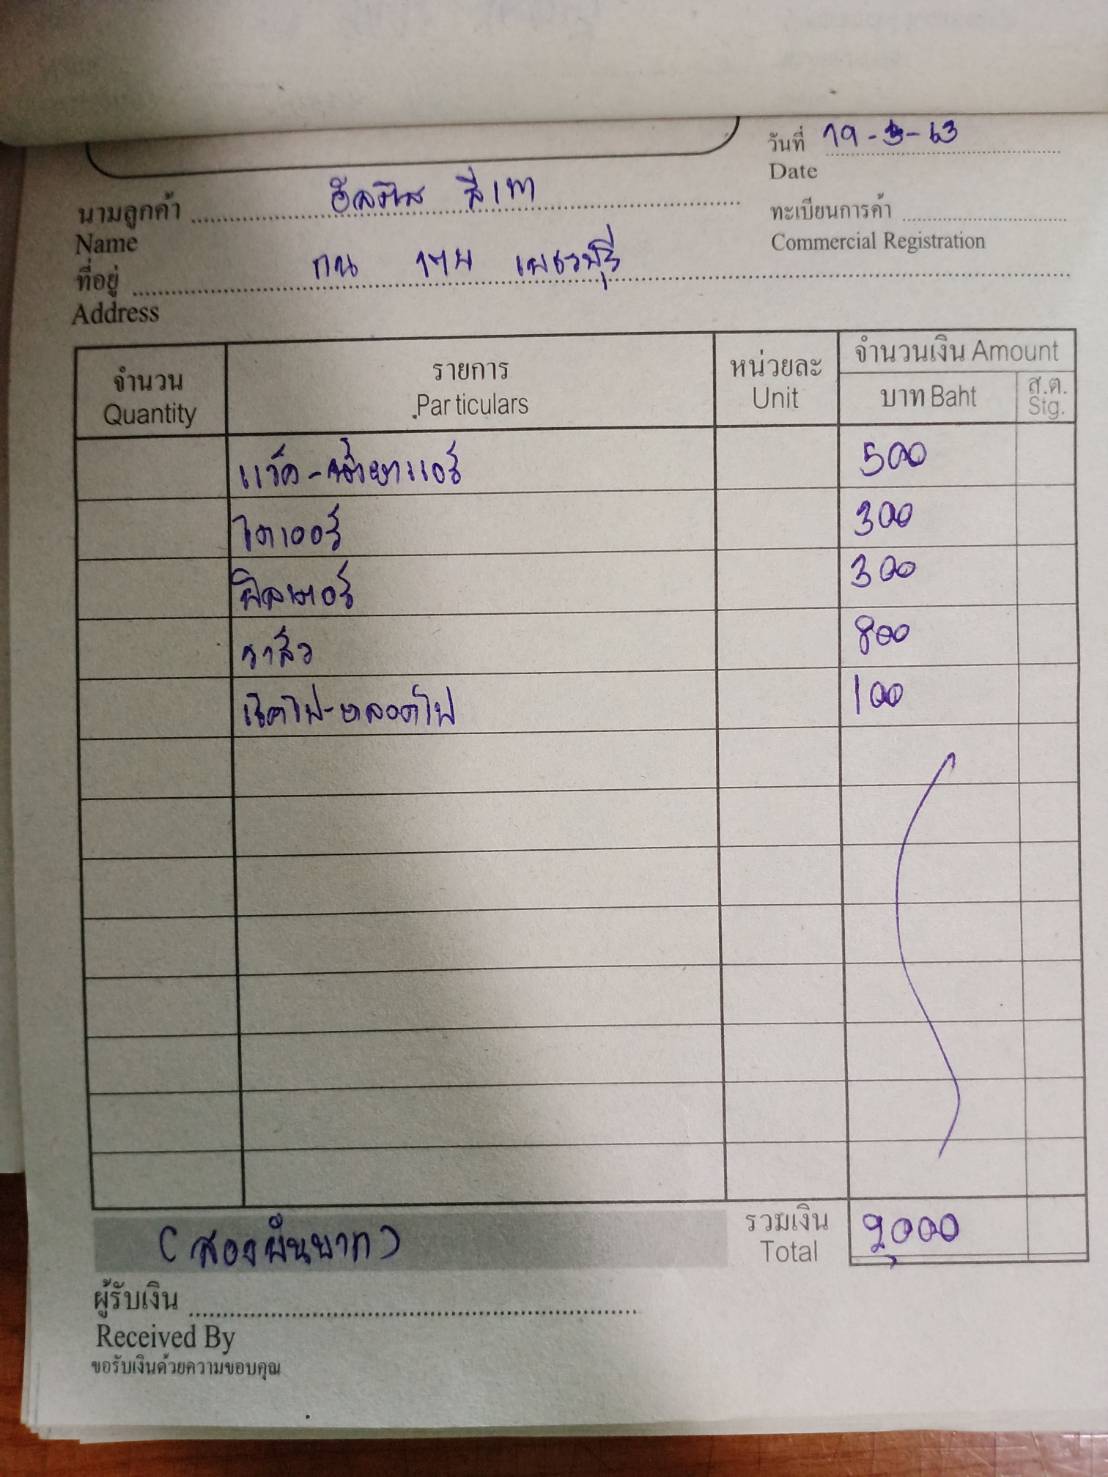 วันที่ 19-5-63
Date
นามลูกค้า สีเทา
Name
ทะเบียนการค้า
Commercial Registration
ที่อยู่ กน เพชรบุรี
Address
จำนวน รายการ หน่วยละ จำนวนเงิน Amount
Quantity Particulars Unit บาท Baht ส.ต.
Stg.
แว๊ค-น้ำยาแอร์ 500
ไดเออร์ 300
ฟิลเตอร์ 300
วาล์ว 800
เช็คไฟ-หลอดไฟ 100
(สองพันบาท) รวมเงิน 2,000
Total
ผู้รับเงิน
Received By
ขอรับเงินด้วยความขอบคุณ